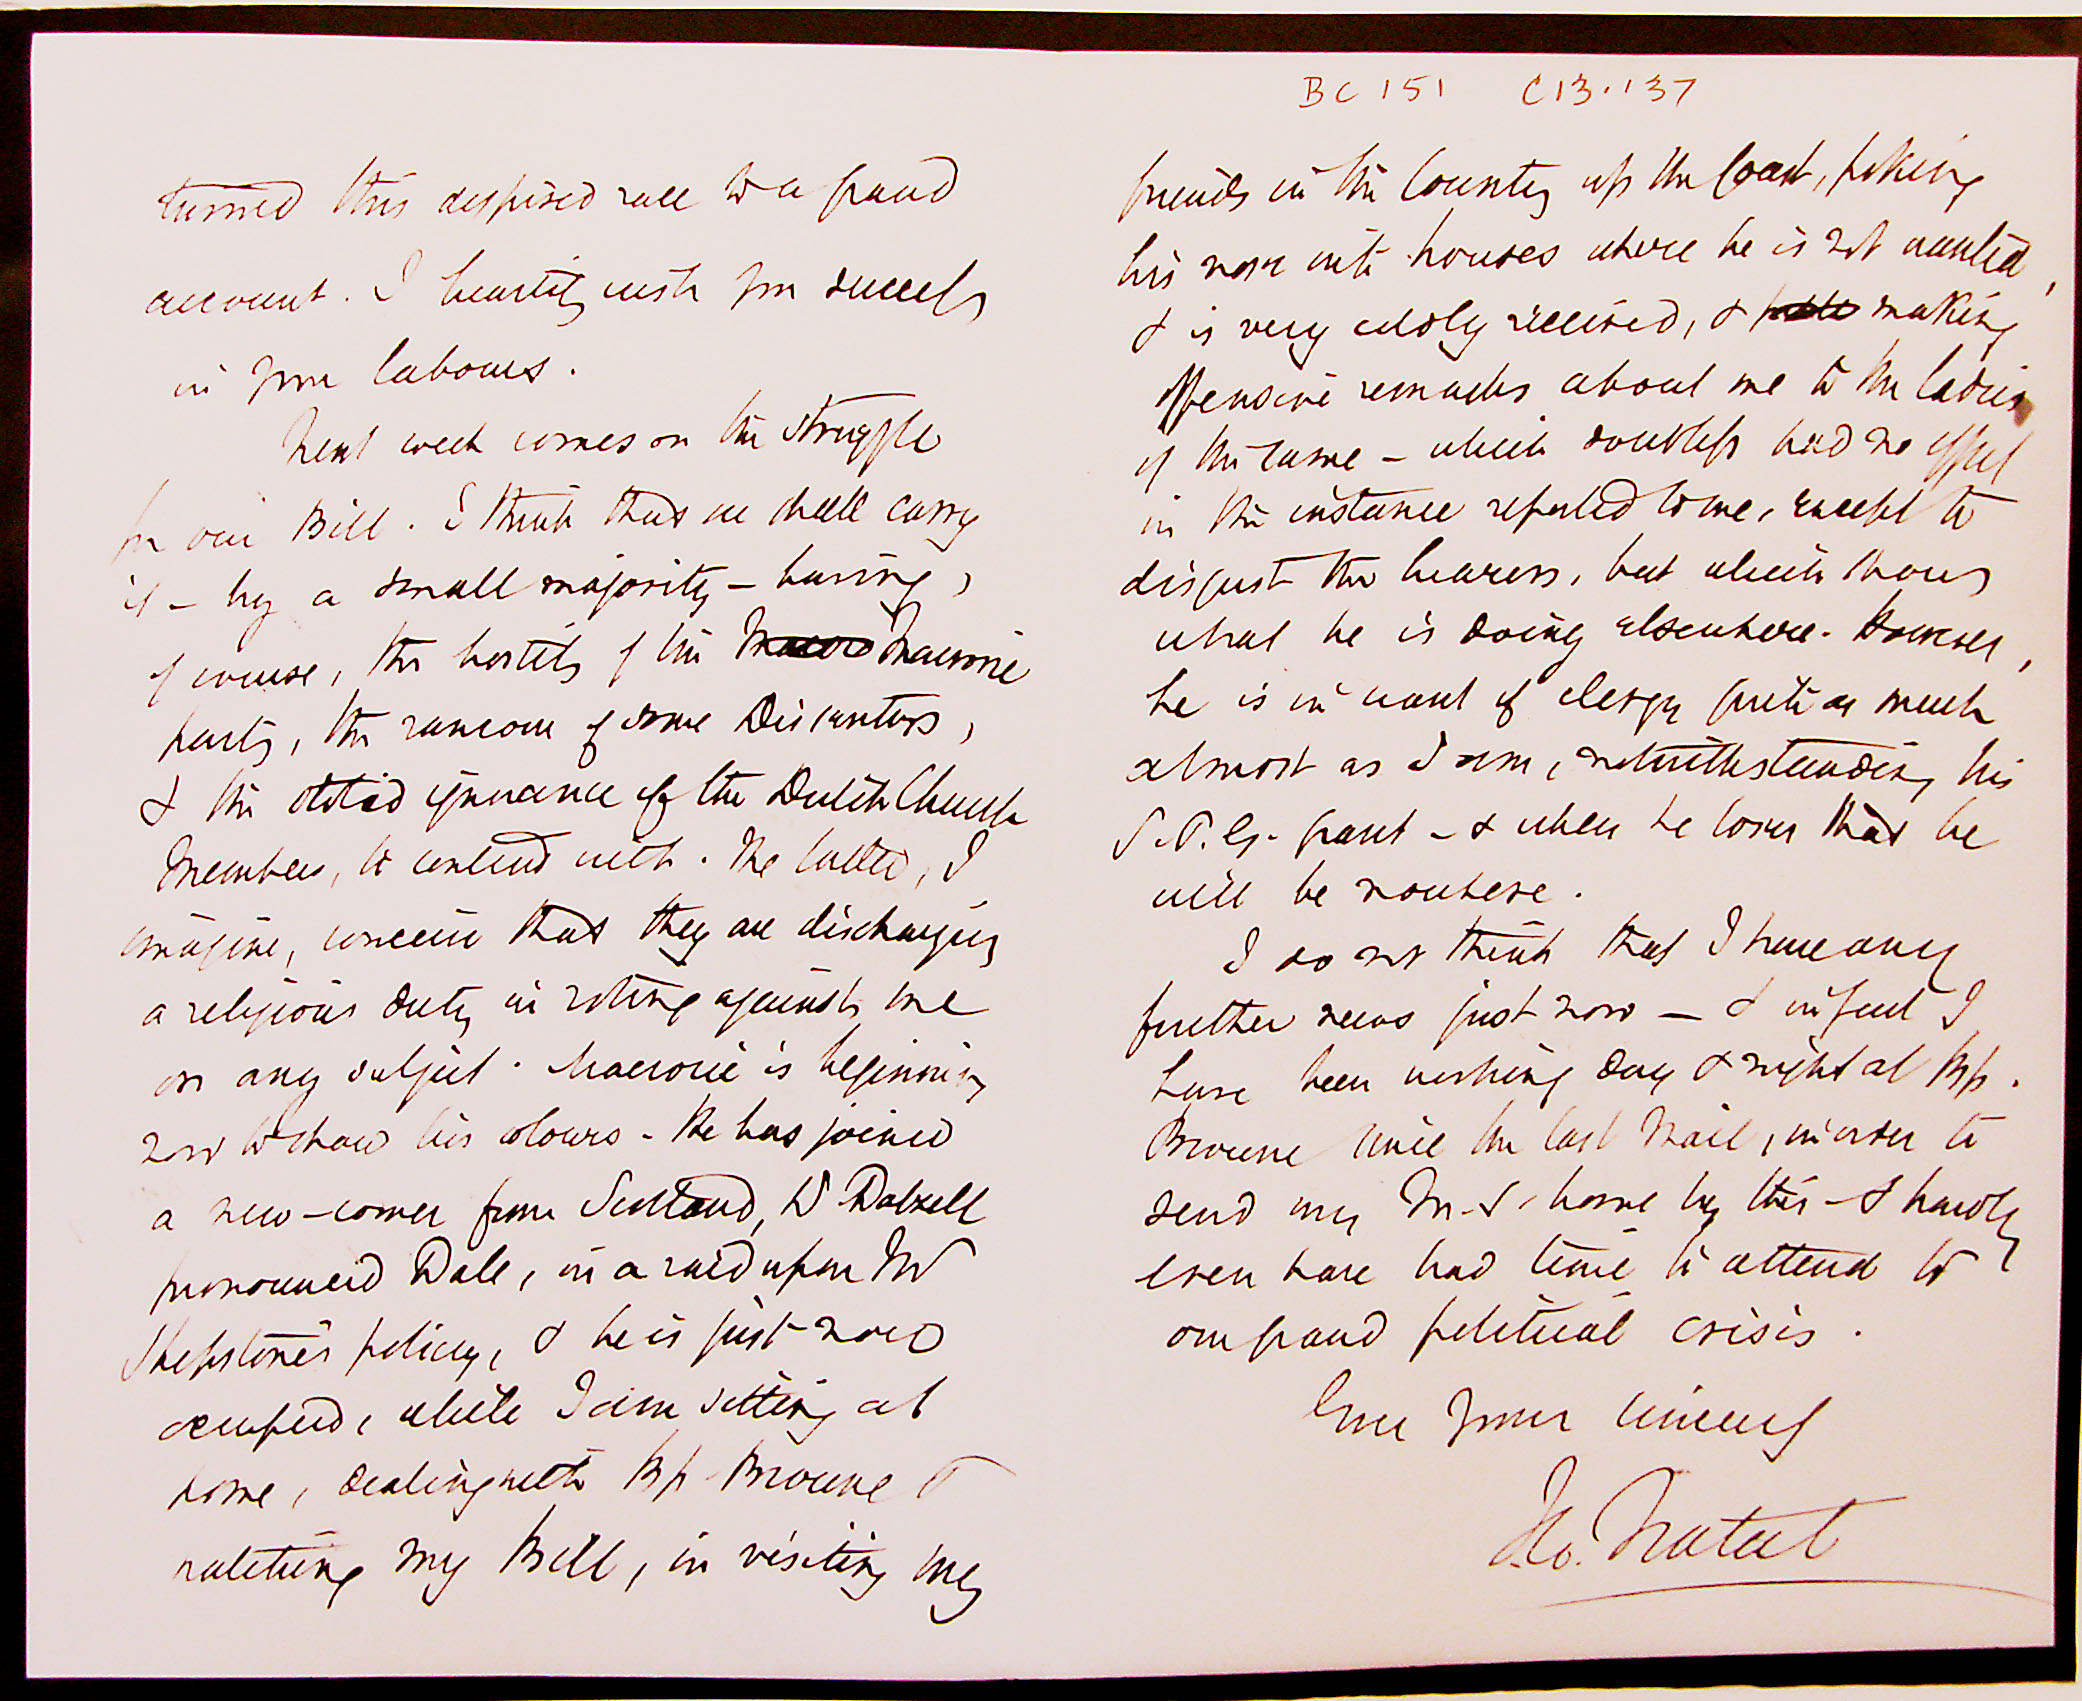 turned this despised race to a good
account. I heartily wish you success
in your labours.
Next week comes on the struggle
for our Bill. I think that we shall carry
it - by a small majority - having,
of course, the hostility of the Macrorie
party, the rancour of some Dissenters,
& the stolid ignorance of the Dutch Church
Members, to contend with. The latter, I
imagine, conceive that they are discharging
a religious duty in voting against me
on any subject. Macrorie is beginning
now to show his colours. He has joined
a new-comer from Scotland, Dr Dalzell
pronounced Dale, in a raid upon Mr
Shepstone's policy, & he is just now
occupied, while I am sitting at
home, dealing with Bp. Browne &
watching my Bill, in visiting my
BC 151 C13.137
friends in the County up the Coast, poking
his nose into houses where he is not wanted,
& is very coldly received, & making
offensive remarks about me to the ladies
of the same - which doubtless had no effect
in the instance reported to me, except to
disgust the hearers, but which shows
what he is doing elsewhere. However,
he is in want of clergy quite as much
almost as I am, notwithstanding his
S.P.G. grant - & when he loses that he
will be nowhere.
I do not think that I have any
further news just now - & in fact I
have been working day & night at Bp.
Browne since the last Mail, in order to
send my M.S. home by this - & hardly
even have had time to attend to
our grand political crisis.
Ever yours sincerely
Jno. Natal